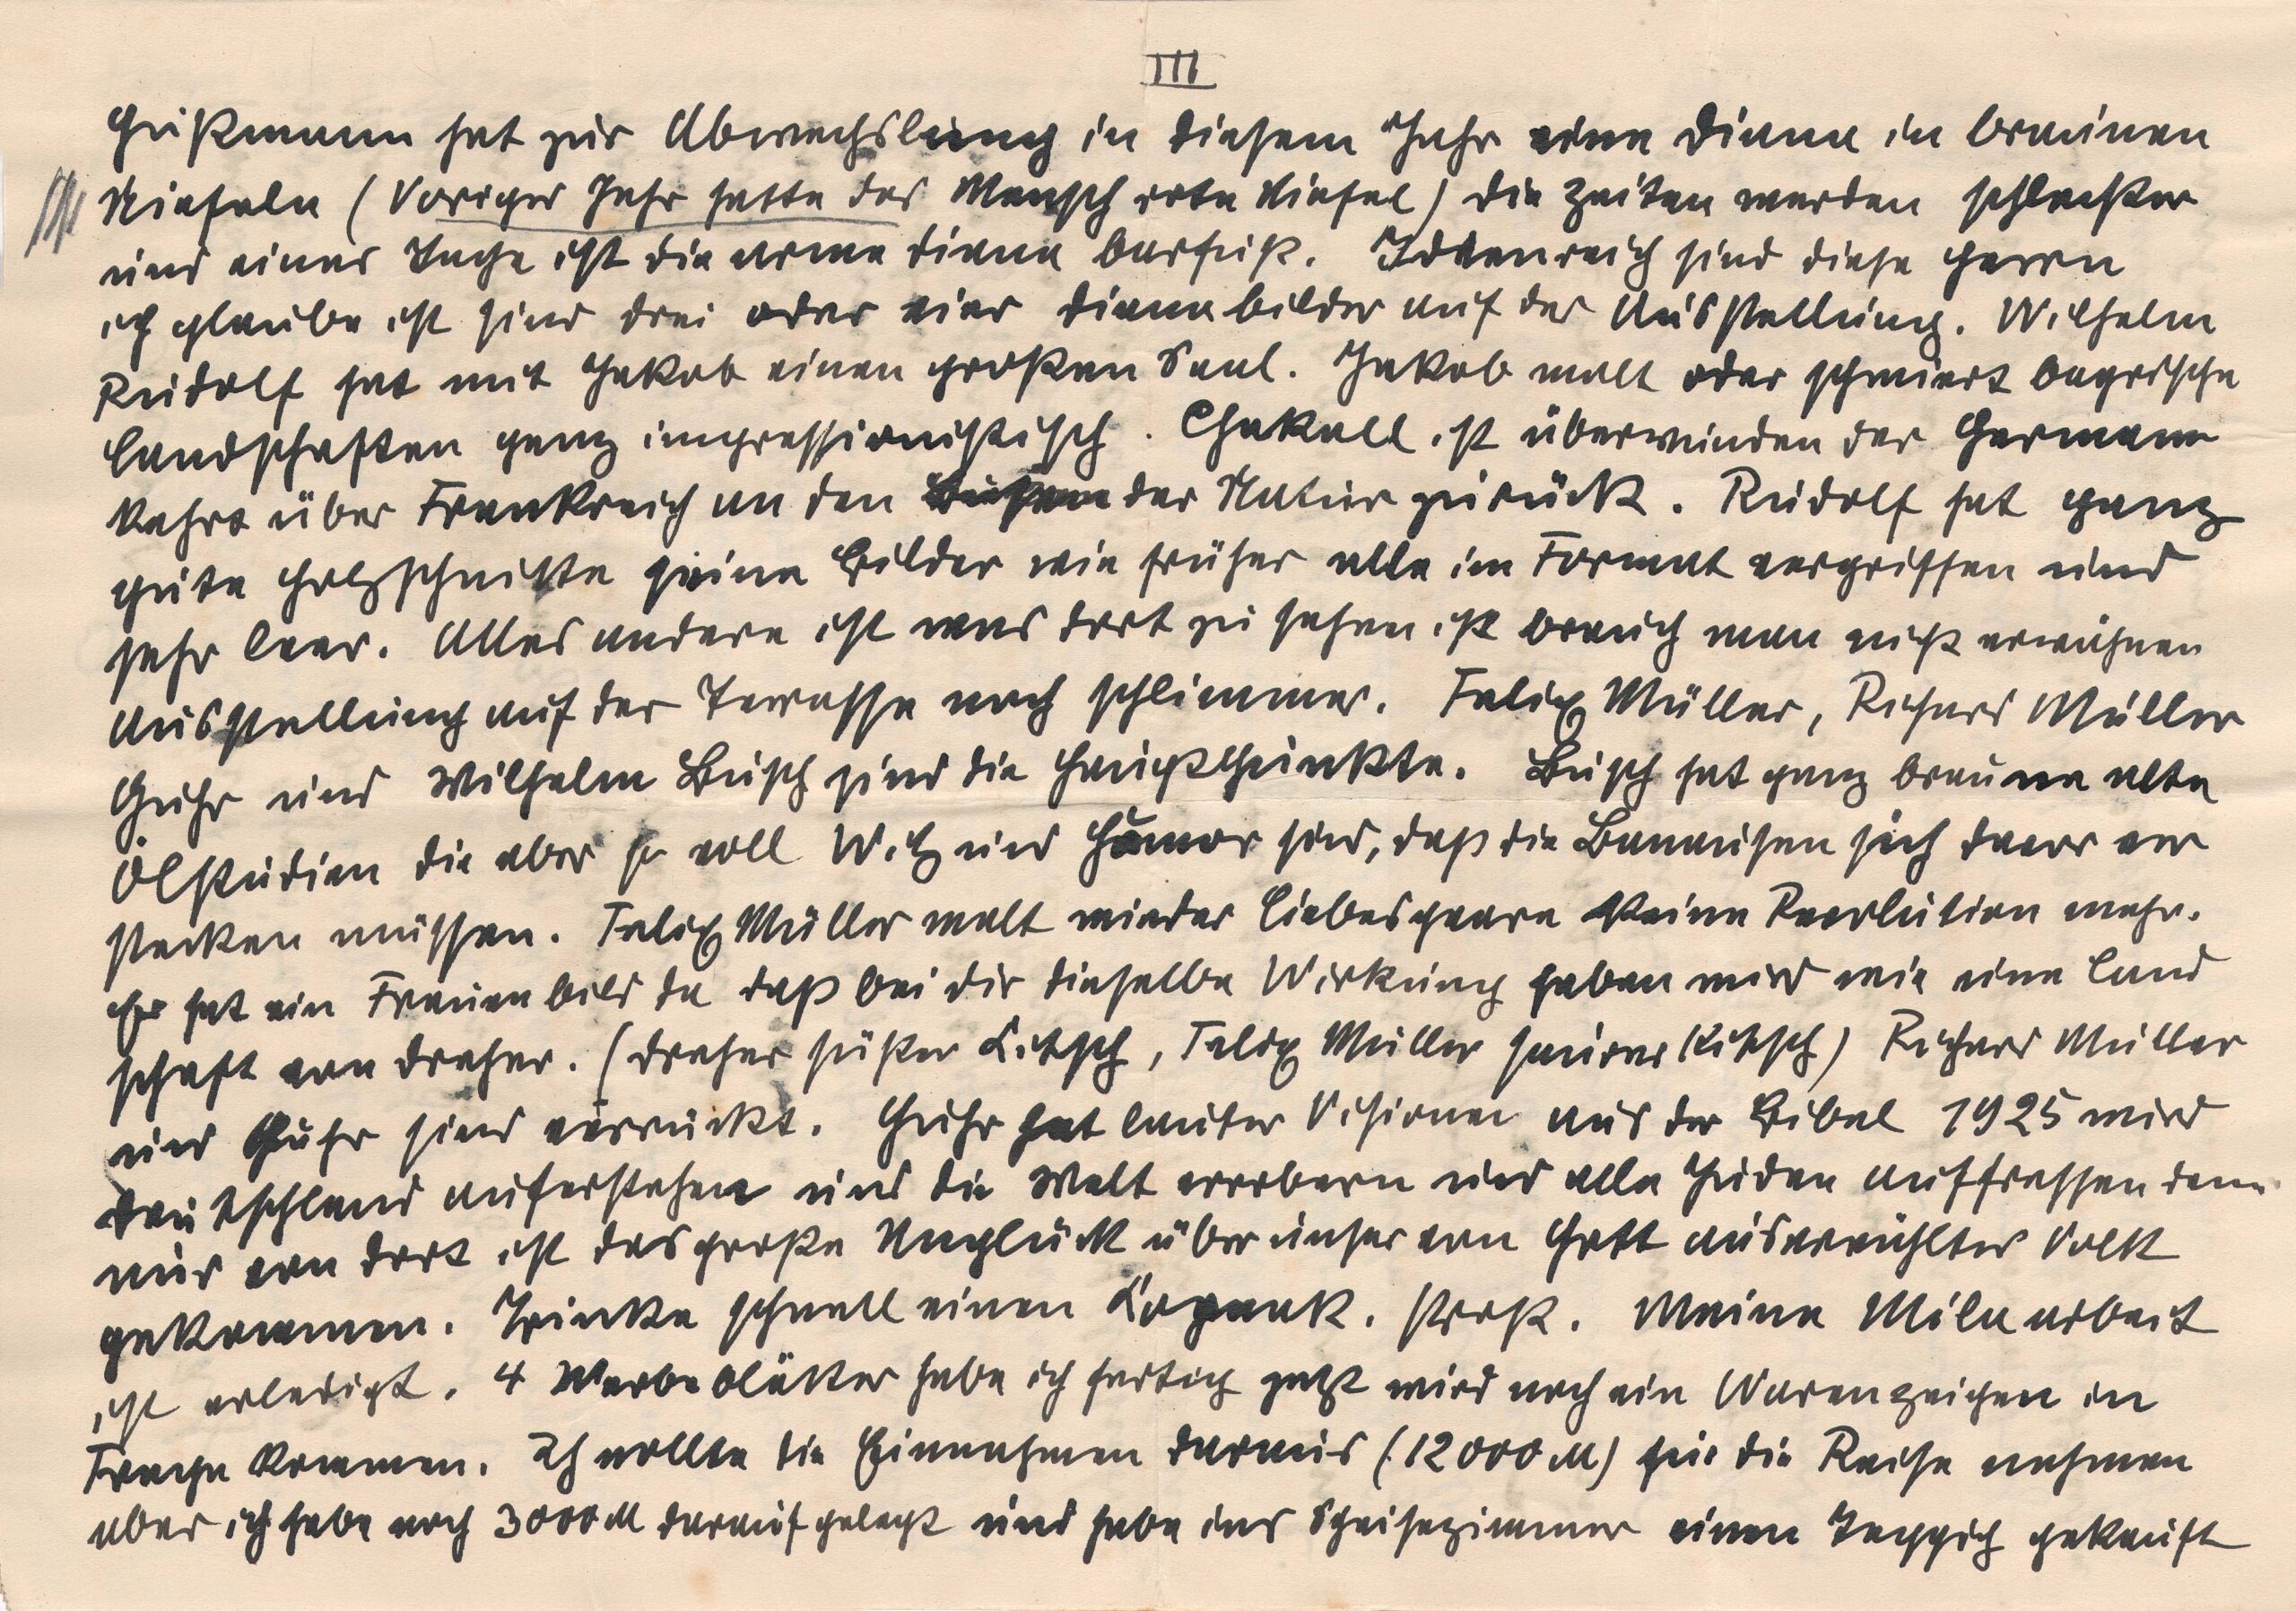 III
Gußmann hat zur Abwechslung in diesem Jahr eine Diana in braunen
Stiefeln (Voriges Jahr hatte das Mensch rote Stiefel) die Zeiten werden schlechter
und eines Tages ist die arme Diana barfuß. Ideenreich sind diese Herrn
ich glaube ist sind drei oder vier Dianabilder auf der Ausstellung. Wilhelm
Rudolf hat mit Jakob einen großen Saal. Jakob malt oder schmiert bayrische
Landschaften ganz impressionistisch. Chakall ist überwunden der Germane
kehrt über Frankreich an den Busen der Natur zurück. Rudolf hat ganz
gute Holzschnitte seine Bilder wie früher alle im Format vergriffen und
sehr leer. Alles andere ist was dort zu sehen ist brauch man nicht erwähnen
Ausstellung auf der Terrasse noch schlimmer. Felix Müller, Richard Müller
Guhr und Wilhelm Busch sind die Hauptpunkte. Busch hat ganz braune alte
Ölstudien die aber so voll Witz und Humor sind, daß die Banausen sich davor ver
stecken müssen. Felix Müller malt wieder Liebespaare keine Revolution mehr.
Er hat ein Frauenbild da daß bei dir dieselbe Wirkung haben wird wie eine Land
schaft von Dreher. (Dreher süßer Kitsch, Felix Müller saurer Kitsch) Richard Müller
und Guhr sind verrückt. Guhr hat lauter Visionen aus der Bibel 1925 wird
Deutschland auferstehen und die Welt erobern und alle Juden auffressen denn
nur von dort ist das große Unglück über unser von Gott auserwähltes Volk
gekommen. Trinke schnell einen Kognak. Prost. Meine Milnarbeit
ist erledigt. 4 Werbeblätter habe ich fertig jetzt wird noch ein Warenzeichen in
Frage kommen. Ich wollte die Einnahmen daraus (12000 M) für die Reise nehmen
aber ich habe noch 3000 M darauf gelegt und habe ins Speisezimmer einen Teppich gekauft